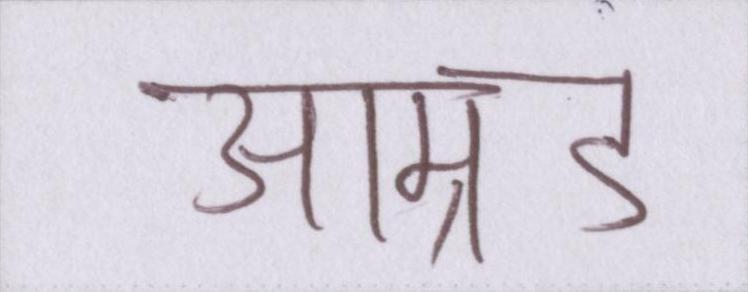 आम्रड